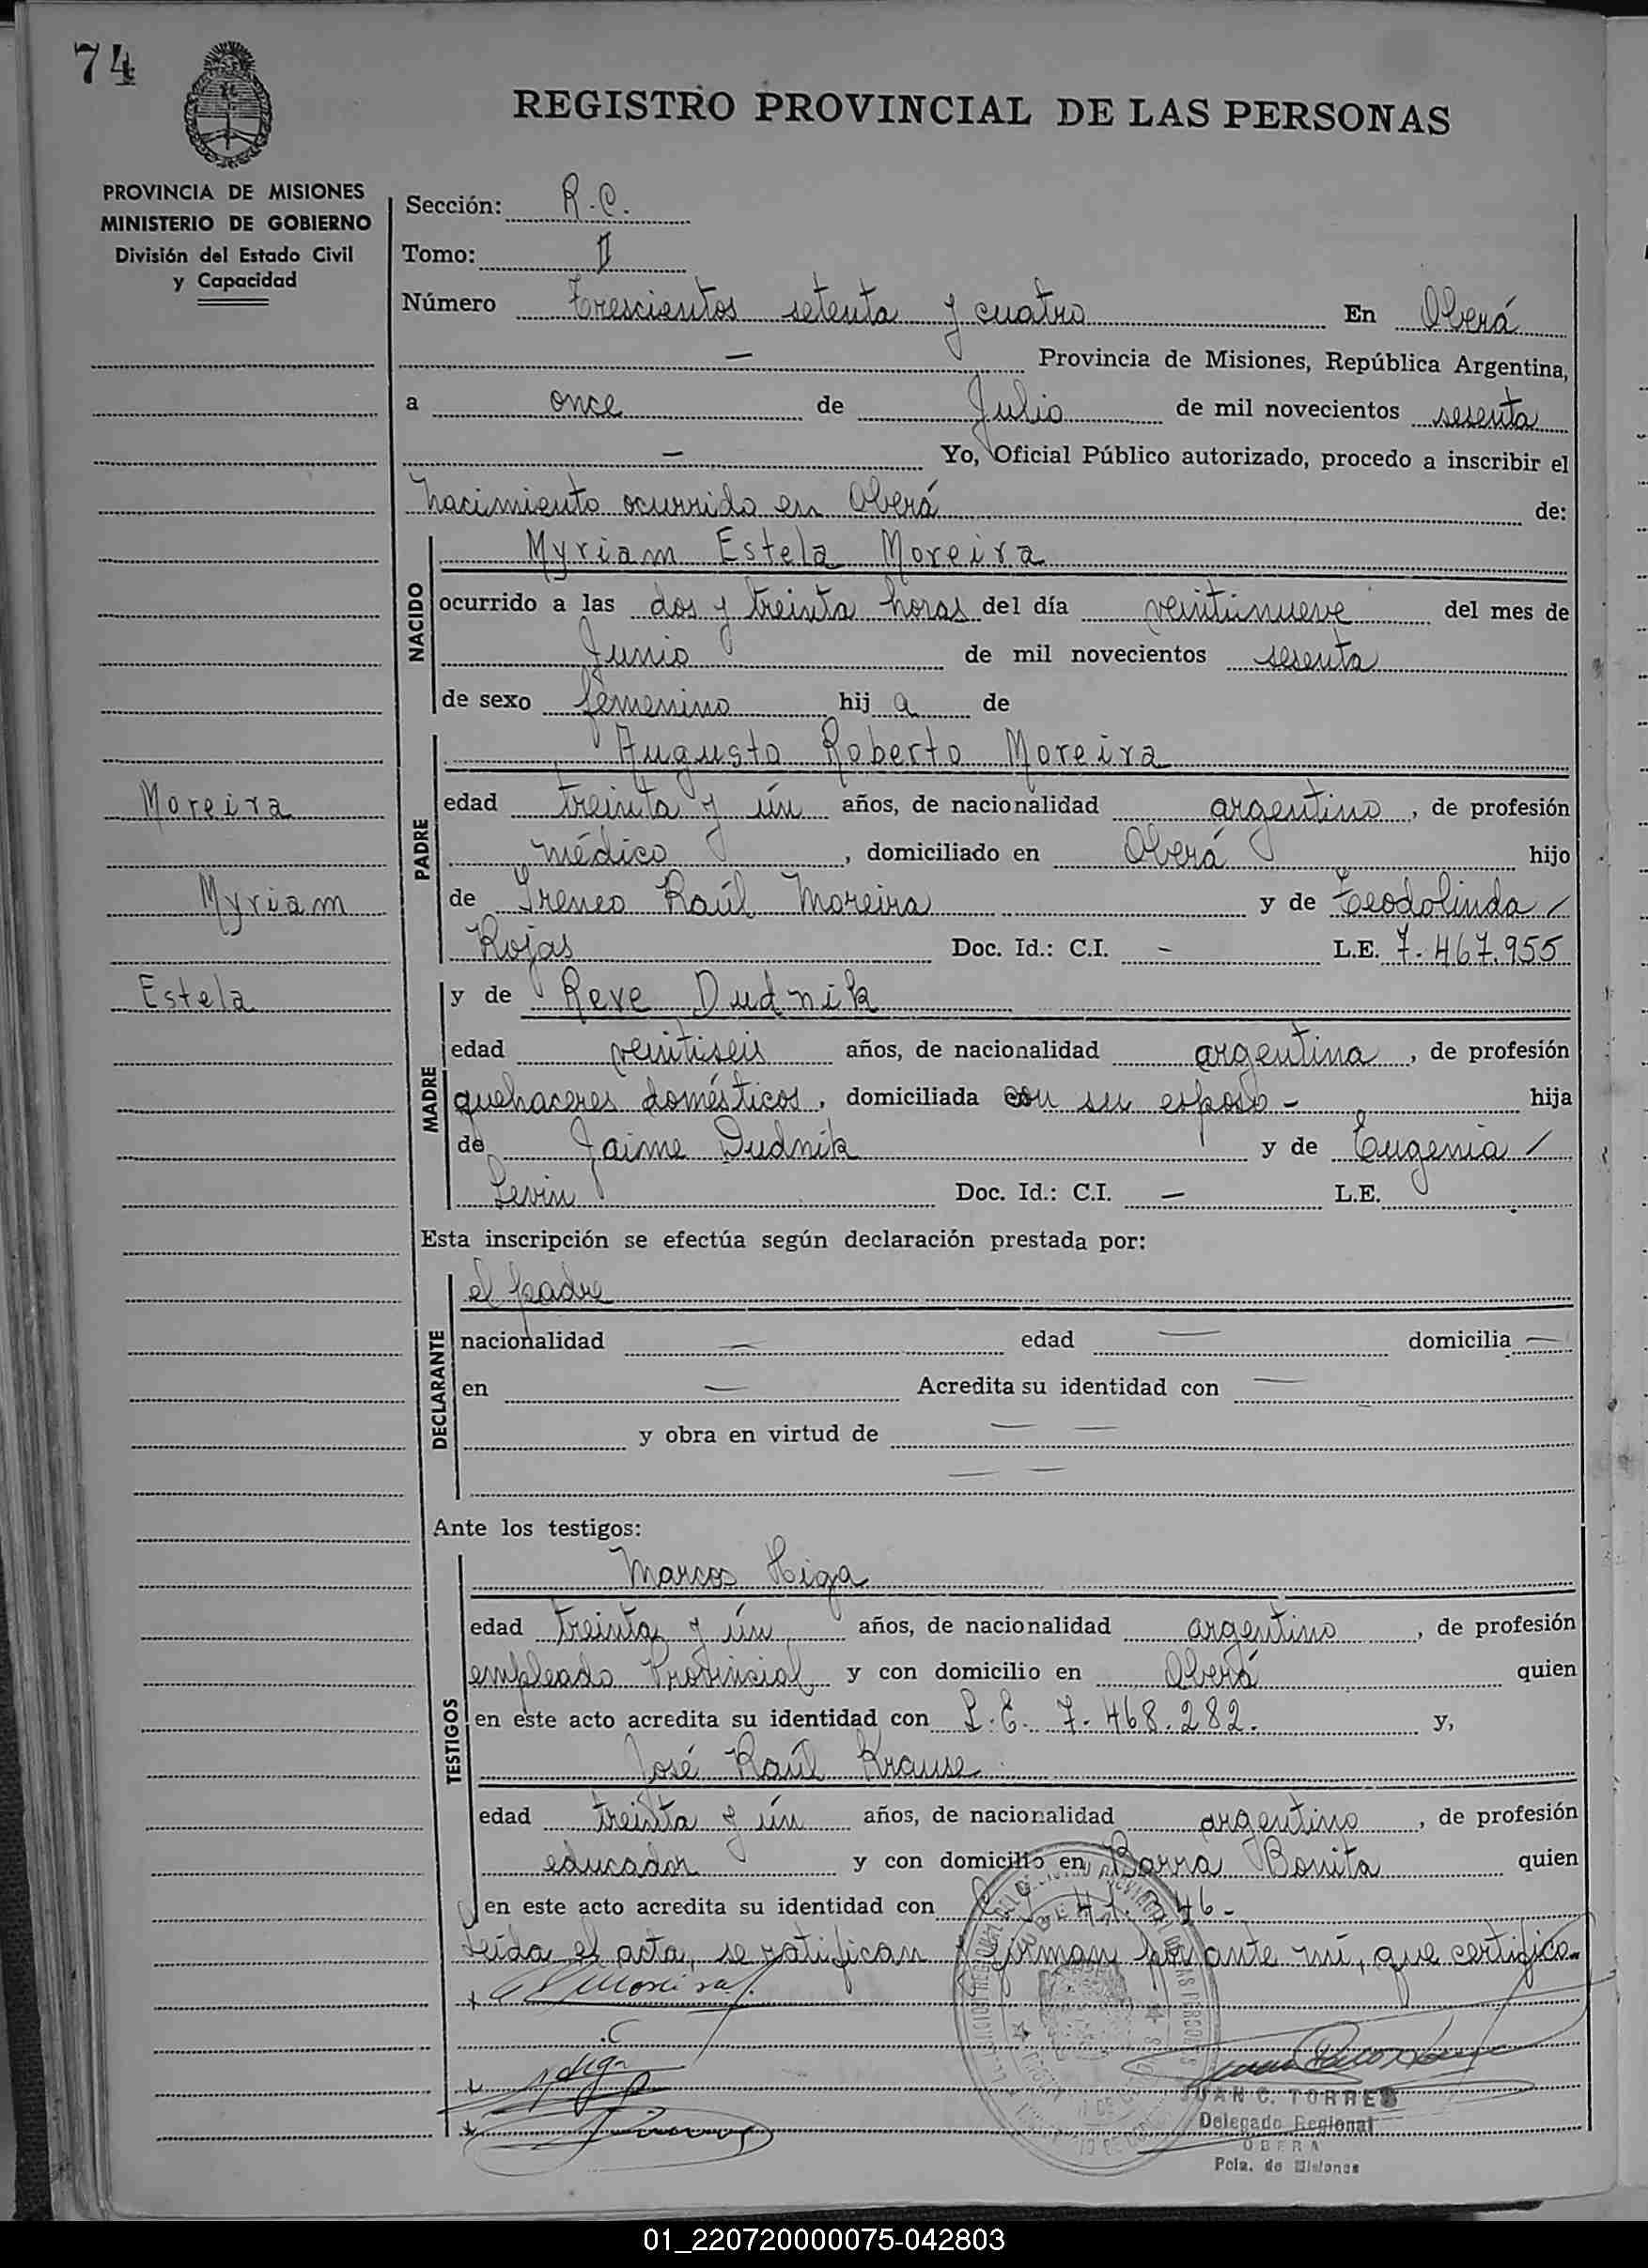 74
REGISTRO PROVINCIAL DE LAS PERSONAS
PROVINCIA DE MISIONES
MINISTERIO DE GOBIERNO
División del Estado Civil
y Capacidad
Sección: R.C.
Tomo: II
Número Trescientos setenta y cuatro En Oberá
— Provincia de Misiones, República Argentina,
a once de Julio de mil novecientos sesenta
— Yo, Oficial Público autorizado, procedo a inscribir el
nacimiento ocurrido en Oberá de:
NACIDO
Myriam Estela Moreira
ocurrido a las dos y treinta horas del día veintinueve del mes de
Junio de mil novecientos sesenta
de sexo femenino hij a de
PADRE
Augusto Roberto Moreira
Moreira
edad treinta y ún años, de nacionalidad argentino, de profesión
médico, domiciliado en Oberá hijo
Myriam
de Ireneo Raúl Moreira y de Teodolinda /
Rojas Doc. Id.: C.I. - L.E. 7.467.955
Estela
MADRE
y de Reve Dudnik
edad veintiseis años, de nacionalidad argentina, de profesión
quehaceres domésticos, domiciliada con su esposo - hija
de Jaime Dudnik y de Eugenia /
Levin Doc. Id.: C.I. — L.E.
Esta inscripción se efectúa según declaración prestada por:
DECLARANTE
el padre
nacionalidad — edad — domicilia —
en — Acredita su identidad con —
y obra en virtud de — —
— —
Ante los testigos:
TESTIGOS
Marcos Higa
edad treinta y ún años, de nacionalidad argentino, de profesión
empleado Provincial y con domicilio en Oberá quien
en este acto acredita su identidad con L.E. 7.468.282. y,
José Raúl Krause
edad treinta y ún años, de nacionalidad argentino, de profesión
educador y con domicilio en Barra Bonita quien
en este acto acredita su identidad con
Leida el acta, se ratifican y firman por ante mí, que certifico.
JUAN C. TORRES
Delegado Regional
OBERA
Pcia. de Misiones
01_220720000075-042803